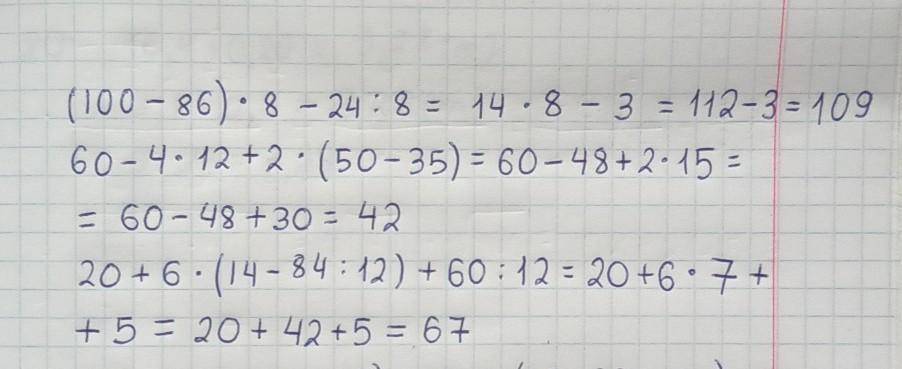 (100 - 86) · 8 - 24 : 8 = 14 · 8 - 3 = 112 - 3 = 109
60 - 4 · 12 + 2 · (50 - 35) = 60 - 48 + 2 · 15 =
= 60 - 48 + 30 = 42
20 + 6 · (14 - 84 : 12) + 60 : 12 = 20 + 6 · 7 +
+ 5 = 20 + 42 + 5 = 67